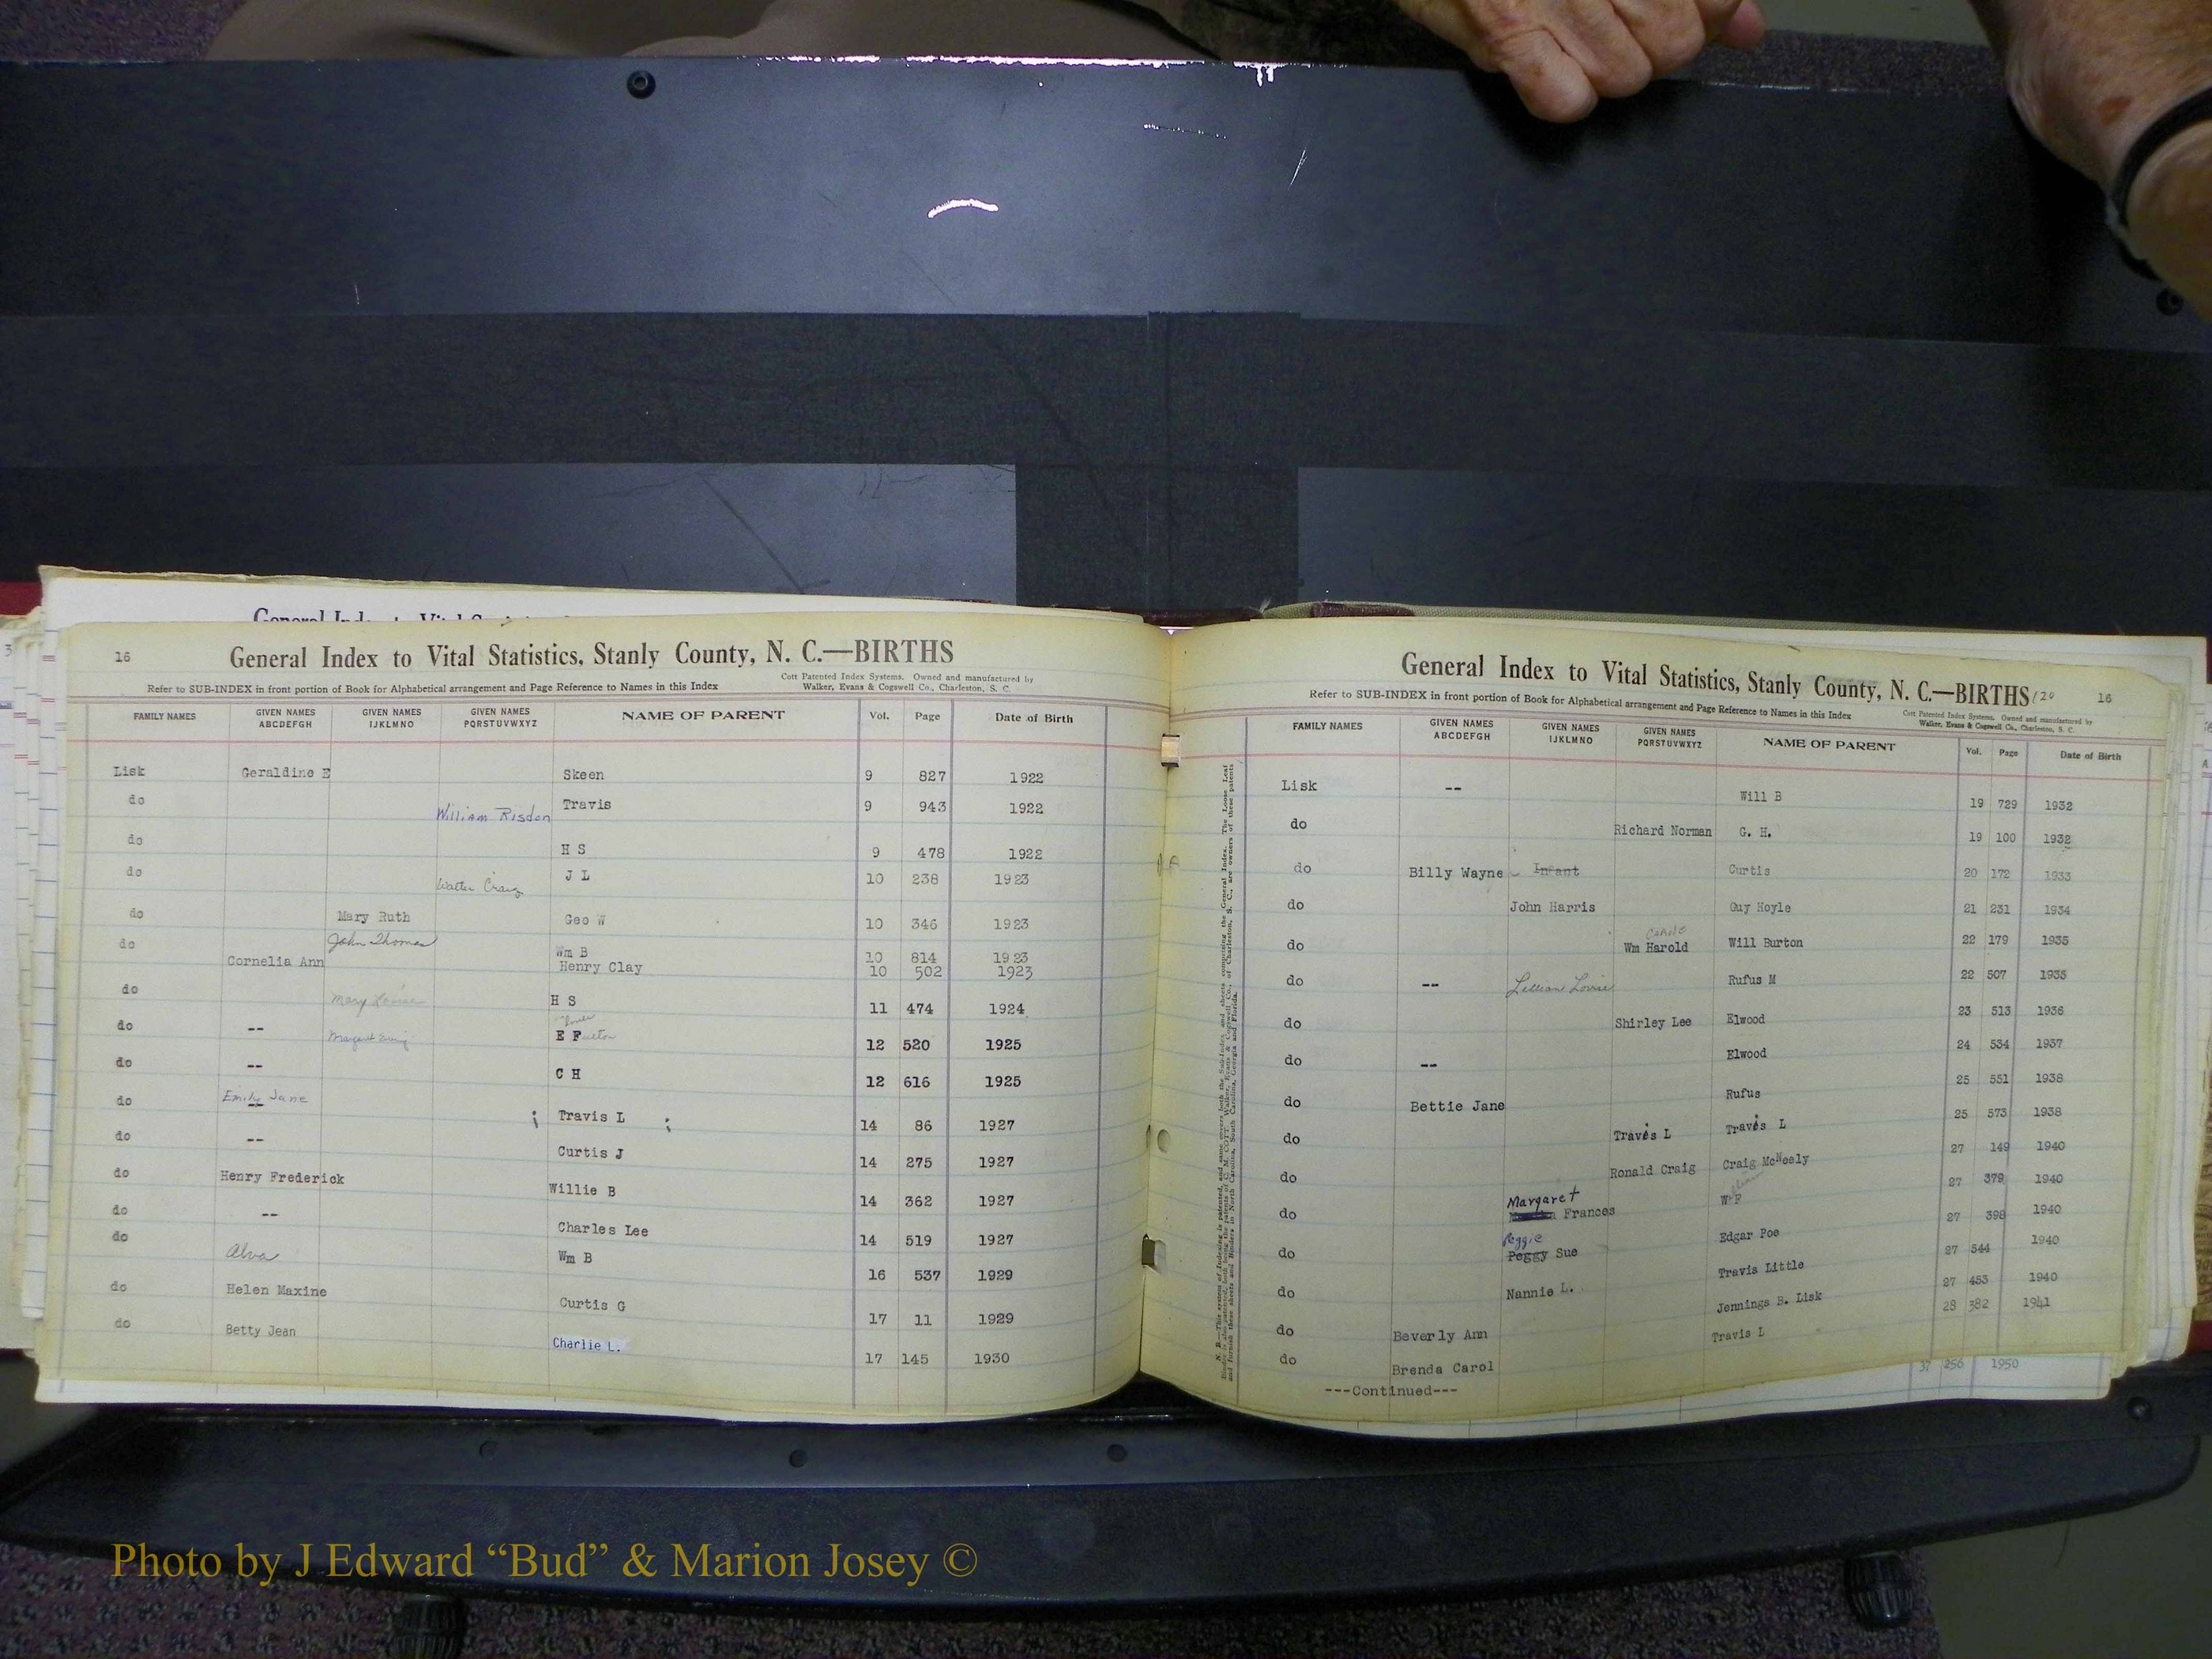 General Index to Vital Statistics, Stanly County, N. C.—BIRTHS
16
Refer to SUB-INDEX in front portion of Book for Alphabetical arrangement and Page Reference to Names in this Index
Cott Patented Index Systems. Owned and manufactured by
Walker, Evans & Cogswell Co., Charleston, S. C.
FAMILY NAMES GIVEN NAMES ABCDEFGH GIVEN NAMES IJKLMNO GIVEN NAMES PQRSTUVWXYZ NAME OF PARENT Vol. Page Date of Birth
Lisk Geraldine E Skeen 9 827 1922
do William Risdon Travis 9 943 1922
do H S 9 478 1922
do Walter Craig J L 10 238 1923
do Mary Ruth Geo W 10 346 1923
do John Thomas Wm B 10 814 1923
Cornelia Ann Henry Clay 10 502 1923
do Mary Louise H S 11 474 1924
do -- Margaret E F 12 520 1925
do -- C H 12 616 1925
do Emily Jane -- Travis L 14 86 1927
do -- Curtis J 14 275 1927
do Henry Frederick Willie B 14 362 1927
do -- Charles Lee 14 519 1927
do Alva Wm B 16 537 1929
do Helen Maxine Curtis G 17 11 1929
do Betty Jean Charlie L. 17 145 1930
General Index to Vital Statistics, Stanly County, N. C.—BIRTHS
120
16
Refer to SUB-INDEX in front portion of Book for Alphabetical arrangement and Page Reference to Names in this Index
Cott Patented Index Systems. Owned and manufactured by
Walker, Evans & Cogswell Co., Charleston, S. C.
FAMILY NAMES GIVEN NAMES ABCDEFGH GIVEN NAMES IJKLMNO GIVEN NAMES PQRSTUVWXYZ NAME OF PARENT Vol. Page Date of Birth
Lisk -- Will B 19 729 1932
do Richard Norman G. H. 19 100 1932
do Billy Wayne Infant Curtis 20 172 1933
do John Harris Guy Hoyle 21 231 1934
do Wm Harold Will Burton 22 179 1935
do -- Lillian Louise Rufus M 22 507 1935
do Shirley Lee Elwood 23 513 1936
do -- Elwood 24 534 1937
do Bettie Jane Rufus 25 551 1938
do Travis L Travis L 25 573 1938
do Ronald Craig Craig McNeely 27 149 1940
do Margaret Frances W P 27 379 1940
do Peggie Peggy Sue Edgar Poe 27 398 1940
do Nannie L. Travis Little 27 544 1940
do Beverly Ann Jennings B. Lisk 27 453 1940
do Brenda Carol Travis L 28 382 1941
---Continued---
37 256 1950
Photo by J Edward “Bud” & Marion Josey ©